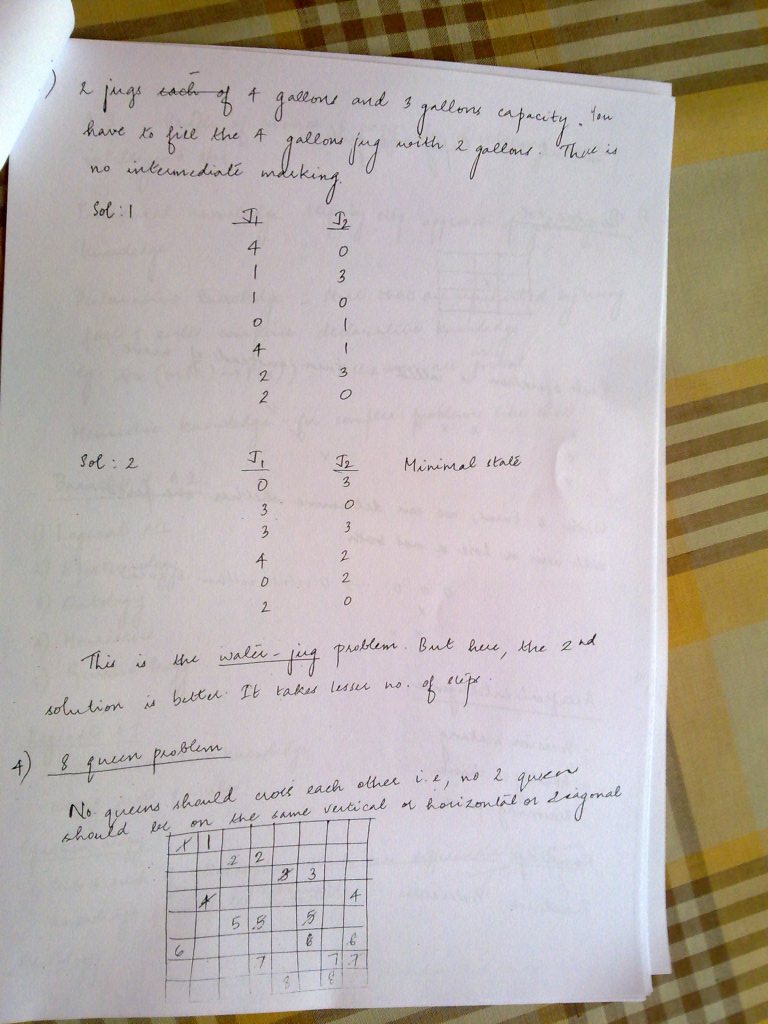 )
2 jugs each of 4 gallons and 3 gallons capacity. You
have to fill the 4 gallons jug with 2 gallons. There is
no intermediate marking.
Sol : 1 J1 J2
4 0
1 3
1 0
0 1
4 1
2 3
2 0
Sol : 2 J1 J2 Minimal state
0 3
3 0
3 3
4 2
0 2
2 0
This is the water-jug problem. But here, the 2nd
solution is better. It takes lesser no. of steps.
4) 8 queen problem
No queens should cross each other i.e, no 2 queens
should be on the same vertical or horizontal or diagonal
1 1
2 2
3 3
4 4
5 5 5
6 6 6
7 7 7
8 8